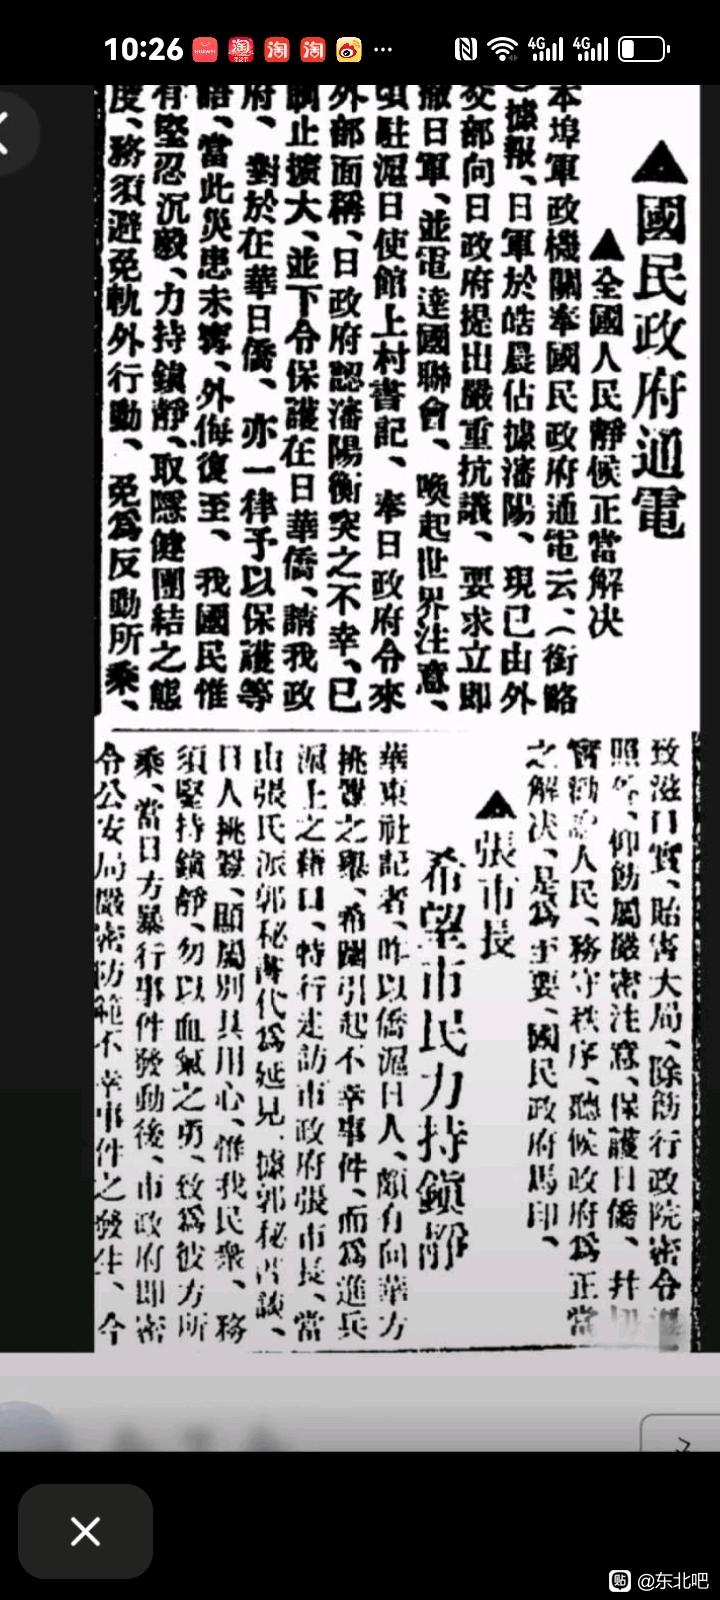 10:26
HUAWEI
淘
淘
淘
4G
4G
▲國民政府通電
▲全國人民靜候正當解决
本埠軍政機關奉國民政府通電云、(銜略
)據報、日軍於皓晨佔據瀋陽、現已由外
交部向日政府提出嚴重抗議、要求立即
撤日軍、並電達國聯會、喚起世界注意、
頃駐滬日使館上村書記、奉日政府令來
外部面稱、日政府認瀋陽衝突之不幸、已
制止擴大、並下令保護在日華僑、請我政
府、對於在華日僑、亦一律予以保護等
語、當此災患未寧、外侮復至、我國民惟
有堅忍沉毅、力持鎮靜、取隱健團結之態
度、務須避免軌外行動、免爲反動所乘、
致滋口實、貽害大局、除飭行政院密令
照外、仰飭屬嚴密注意、保護日僑、幷切
實勸諭人民、務守秩序、聽候政府爲正當
之解决、是爲主要、國民政府馬印、
▲張市長
希望市民力持鎮靜
華東社記者、昨以僑滬日人、頗有向華方
挑釁之舉、希圖引起不幸事件、而爲進兵
滬上之藉口、特行走訪市政府張市長、當
由張氏派郭秘書代爲延見、據郭秘書談、
日人挑釁、顯屬別具用心、惟我民衆、務
須堅持鎮靜、勿以血氣之勇、致爲彼方所
乘、當日方暴行事件發動後、市政府即密
令公安局嚴密防範不幸事件之發生、今
貼 @东北吧